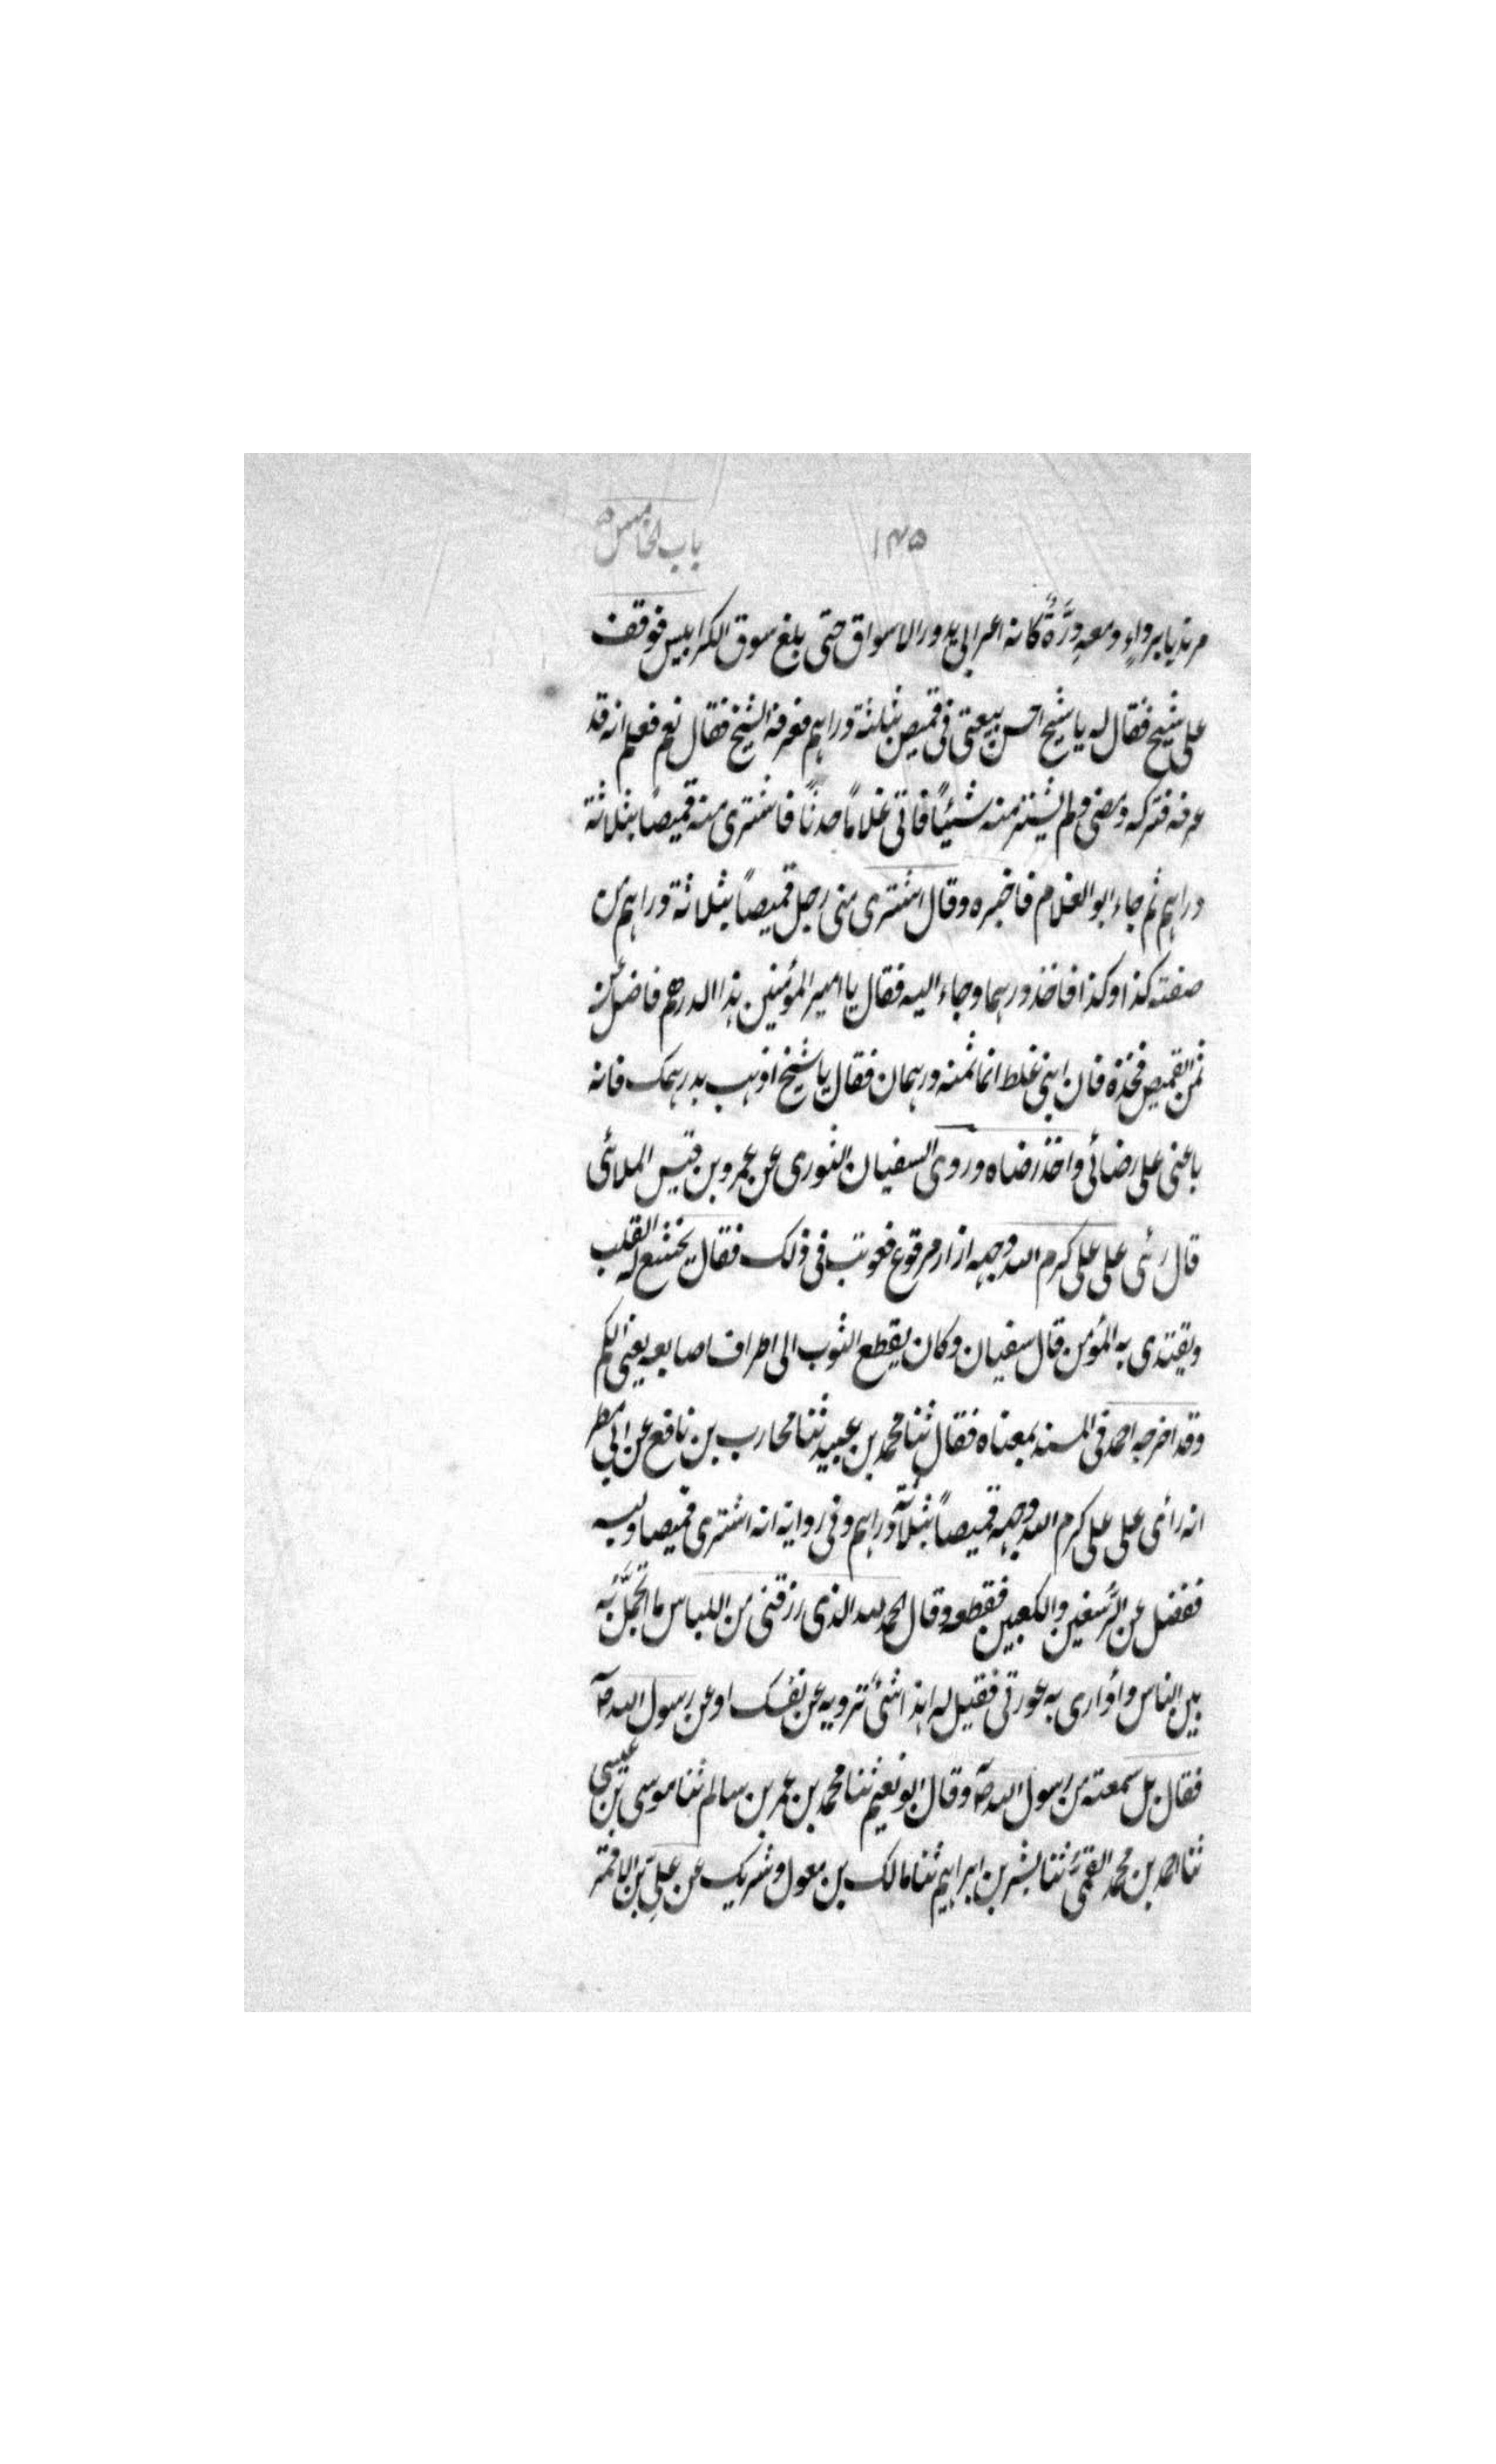 ۱۴۵ باب الخامس
مرتديا برداء ومعه درَّةٌ كانه اعرابي يدور الاسواق حتى بلغ سوق الكرابيس فوقف
على شيخ فقال له يا شيخ احسن بيعتى فى قميص بثلثة دراهم فعرفه الشيخ فقال نعم فعلم انه قد
عرفه فتركه ومضى ولم يشتر منه شيئاً فاتى غلاماً حدثاً فاشترى منه قميصاً بثلاثة
دراهم ثم جاء ابو الغلام فاخبره وقال اشترى منى رجل قميصاً بثلاثة دراهم من
صفته كذا وكذا فاخذ درهما وجاء اليه فقال يا امير المؤمنين هذا الدرهم فاضل عن
ثمن القميص فخذه فان ابنى غلط انما ثمنه درهمان فقال يا شيخ اذهب بدرهمك فانه
باعنى على رضائى واخذ رضاه وروى السفيان الثورى عن عمرو بن قيس الملائى
قال رئى على على كرم الله وجهه ازار مرقوع فعوتب فى ذلك فقال يخشع له القلب
ويقتدى به المؤمن قال سفيان وكان يقطع الثوب الى اطراف اصابعه يعنى الكم
وقد اخرجه احمد فى المسند بمعناه فقال ثنا محمد بن عبيد ثنا محارب بن نافع عن ابى مطر
انه رأى على على كرم الله وجهه قميصاً بثلاثة دراهم وفى رواية انه اشترى قميصا ولبسه
ففضل عن الرُّسغين والكعبين فقطعه وقال الحمد لله الذى رزقنى من اللباس ما اتجمَّل به
بين الناس وأوارى به عورتى فقيل له اهذا شئ ترويه عن نفسك او عن رسول الله ص
فقال بل سمعته من رسول الله ص وقال ابو نعيم ثنا محمد بن عمر بن سالم ثنا موسى بن عيسى
ثنا احمد بن محمد القمى ثنا بشر بن ابراهيم ثنا مالك بن معول وشريك عن على بن الاقمر